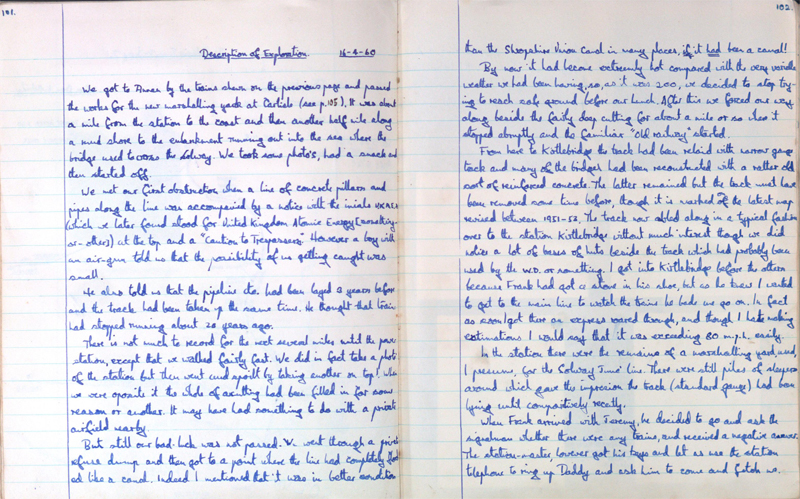 101.
Description of Exploration. 16-4-60
We got to Annan by the trains shown on the previous page and passed
the works for the new marshalling yard at Carlisle (see p.105). It was about
a mile from the station to the coast and then another half mile along
a mud shore to the embankment running out into the sea where the
bridge used to cross the Solway. We took some photo's, had a snack and
then started off.
We met our first obstruction when a line of concrete pillars and
pipes along the line was accompanied by a notice with the initials U.K.A.E.A
(which we later found stood for United Kingdom Atomic Energy [something-
or-other]) at the top and a "Caution to Trespassers". However a boy with
an air-gun told us that the possibility of us getting caught was
small.
He also told us that the pipeline etc. had been layed 3 years before
and the track had been taken up the same time. He thought that trains
had stopped running about 20 years ago.
There is not much to record for the next several miles until the power
station, except that we walked fairly fast. We did in fact take a photo
of the station but then went and spoilt it by taking another on top! When
we were opposite it the whole of a cutting had been filled in for some
reason or another. It may have had something to do with a private
airfield nearby.
But still our bad-luck was not passed. We went through a private
refuse dump and then got to a point where the line had completely flood-
ed like a canal. Indeed I mentioned that it was in better condition
102.
than the Shropshire Union Canal in many places, if it had been a canal!
By now it had become extremely hot compared with the very variable
weather we had been having, so, as it was 2.00, we decided to stop try-
ing to reach safe ground before our lunch. After this we forced our way
along beside the fairly deep cutting for about a mile or so when it
stopped abruptly and the familiar "old railway" started.
From here to Kirtlebridge the track had been relaid with narrow gauge
track and many of the bridges had been reconstructed with a rather odd
sort of reinforced concrete. The latter remained but the track must have
been removed some time before, though it is marked of the latest map
revised between 1951-52. The track now ambled along in a typical fashion
over to the station Kirtlebridge without much interest though we did
notice a lot of bases of huts beside the track which had probably been
used by the W.D. or something. I got into Kirtlebridge before the others
because Frank had got a stone in his shoe, but as he knew I wanted
to get to the main line to watch the trains he bade me go on. In fact
as soon I got there an express roared through, and though I hate making
estimations I would say that it was exceeding 80 m.p.h. easily.
In the station there were the remains of a marshalling yard, used,
I presume, for the Solway Junc' line. There were still piles of sleepers
around which gave the impression the track (standard gauge) had been
lying until comparitively recently.
When Frank arrived with Jeremy, he decided to go and ask the
signalman whether there were any trains, and received a negative answer.
The station-master, however got his keys and let us use the station
telephone to ring up Daddy and ask him to come and fetch us.